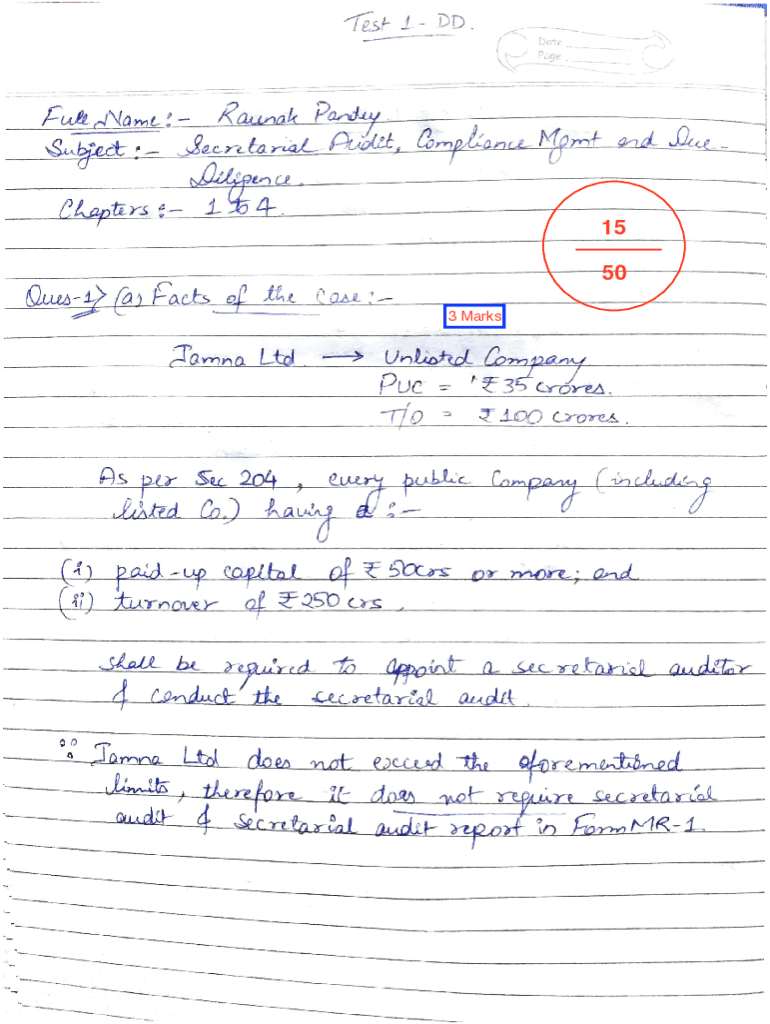 Test 1 - DD.
Date
Page
Full Name :- Raunak Pandey
Subject :- Secretarial Audit, Compliance Mgmt and Due-
Diligence.
Chapters :- 1 to 4.
15
50
Ques-1) (a) Facts of the Case :-
3 Marks
Jamna Ltd. → Unlisted Company
PUC = ₹35 crores.
T/O = ₹100 crores.
As per Sec 204, every public Company (including
listed Co.) having :-
(i) paid-up capital of ₹50crs or more; and
(ii) turnover of ₹250 crs.
shall be required to appoint a secretarial auditor
& conduct the secretarial audit.
∴ Jamna Ltd does not exceed the aforementioned
limits, therefore it does not require secretarial
audit & secretarial audit report in Form MR-1.